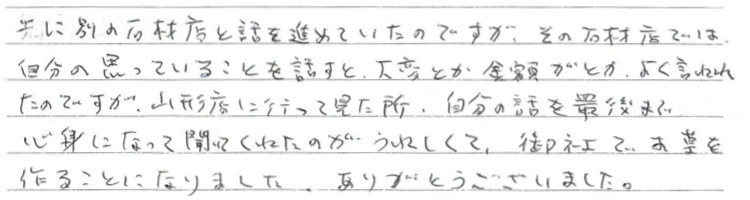 先に別の石材店と話を進めていたのですが、その石材店では、
自分の思っていることを話すと、大変とか金額がとか、よく言われ
たのですが、山形店に行って見た所、自分の話を最後まで
心身になって聞いてくれたのがうれしくて、御社でお墓を
作ることになりました。ありがとうございました。